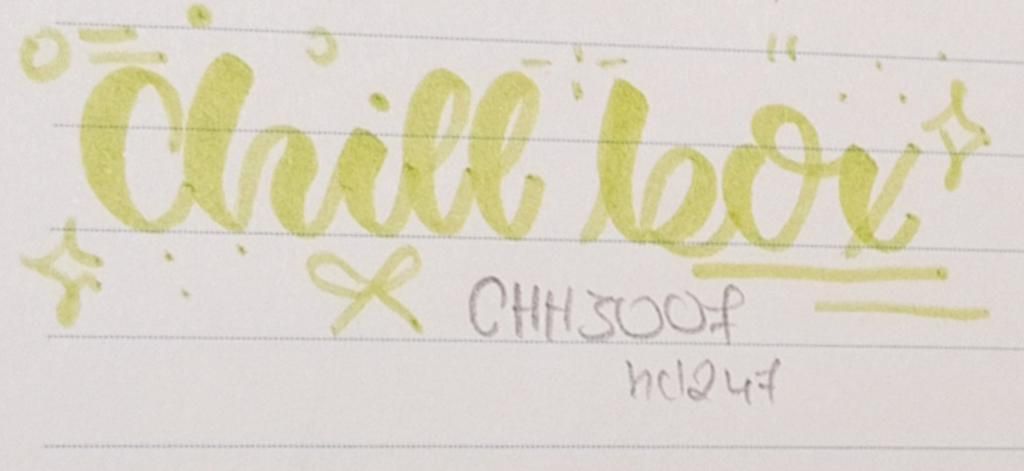 chill box
CHH3007
hcl247